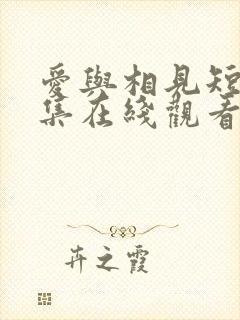 愛與相見短
集在綫觀看
卉之霞